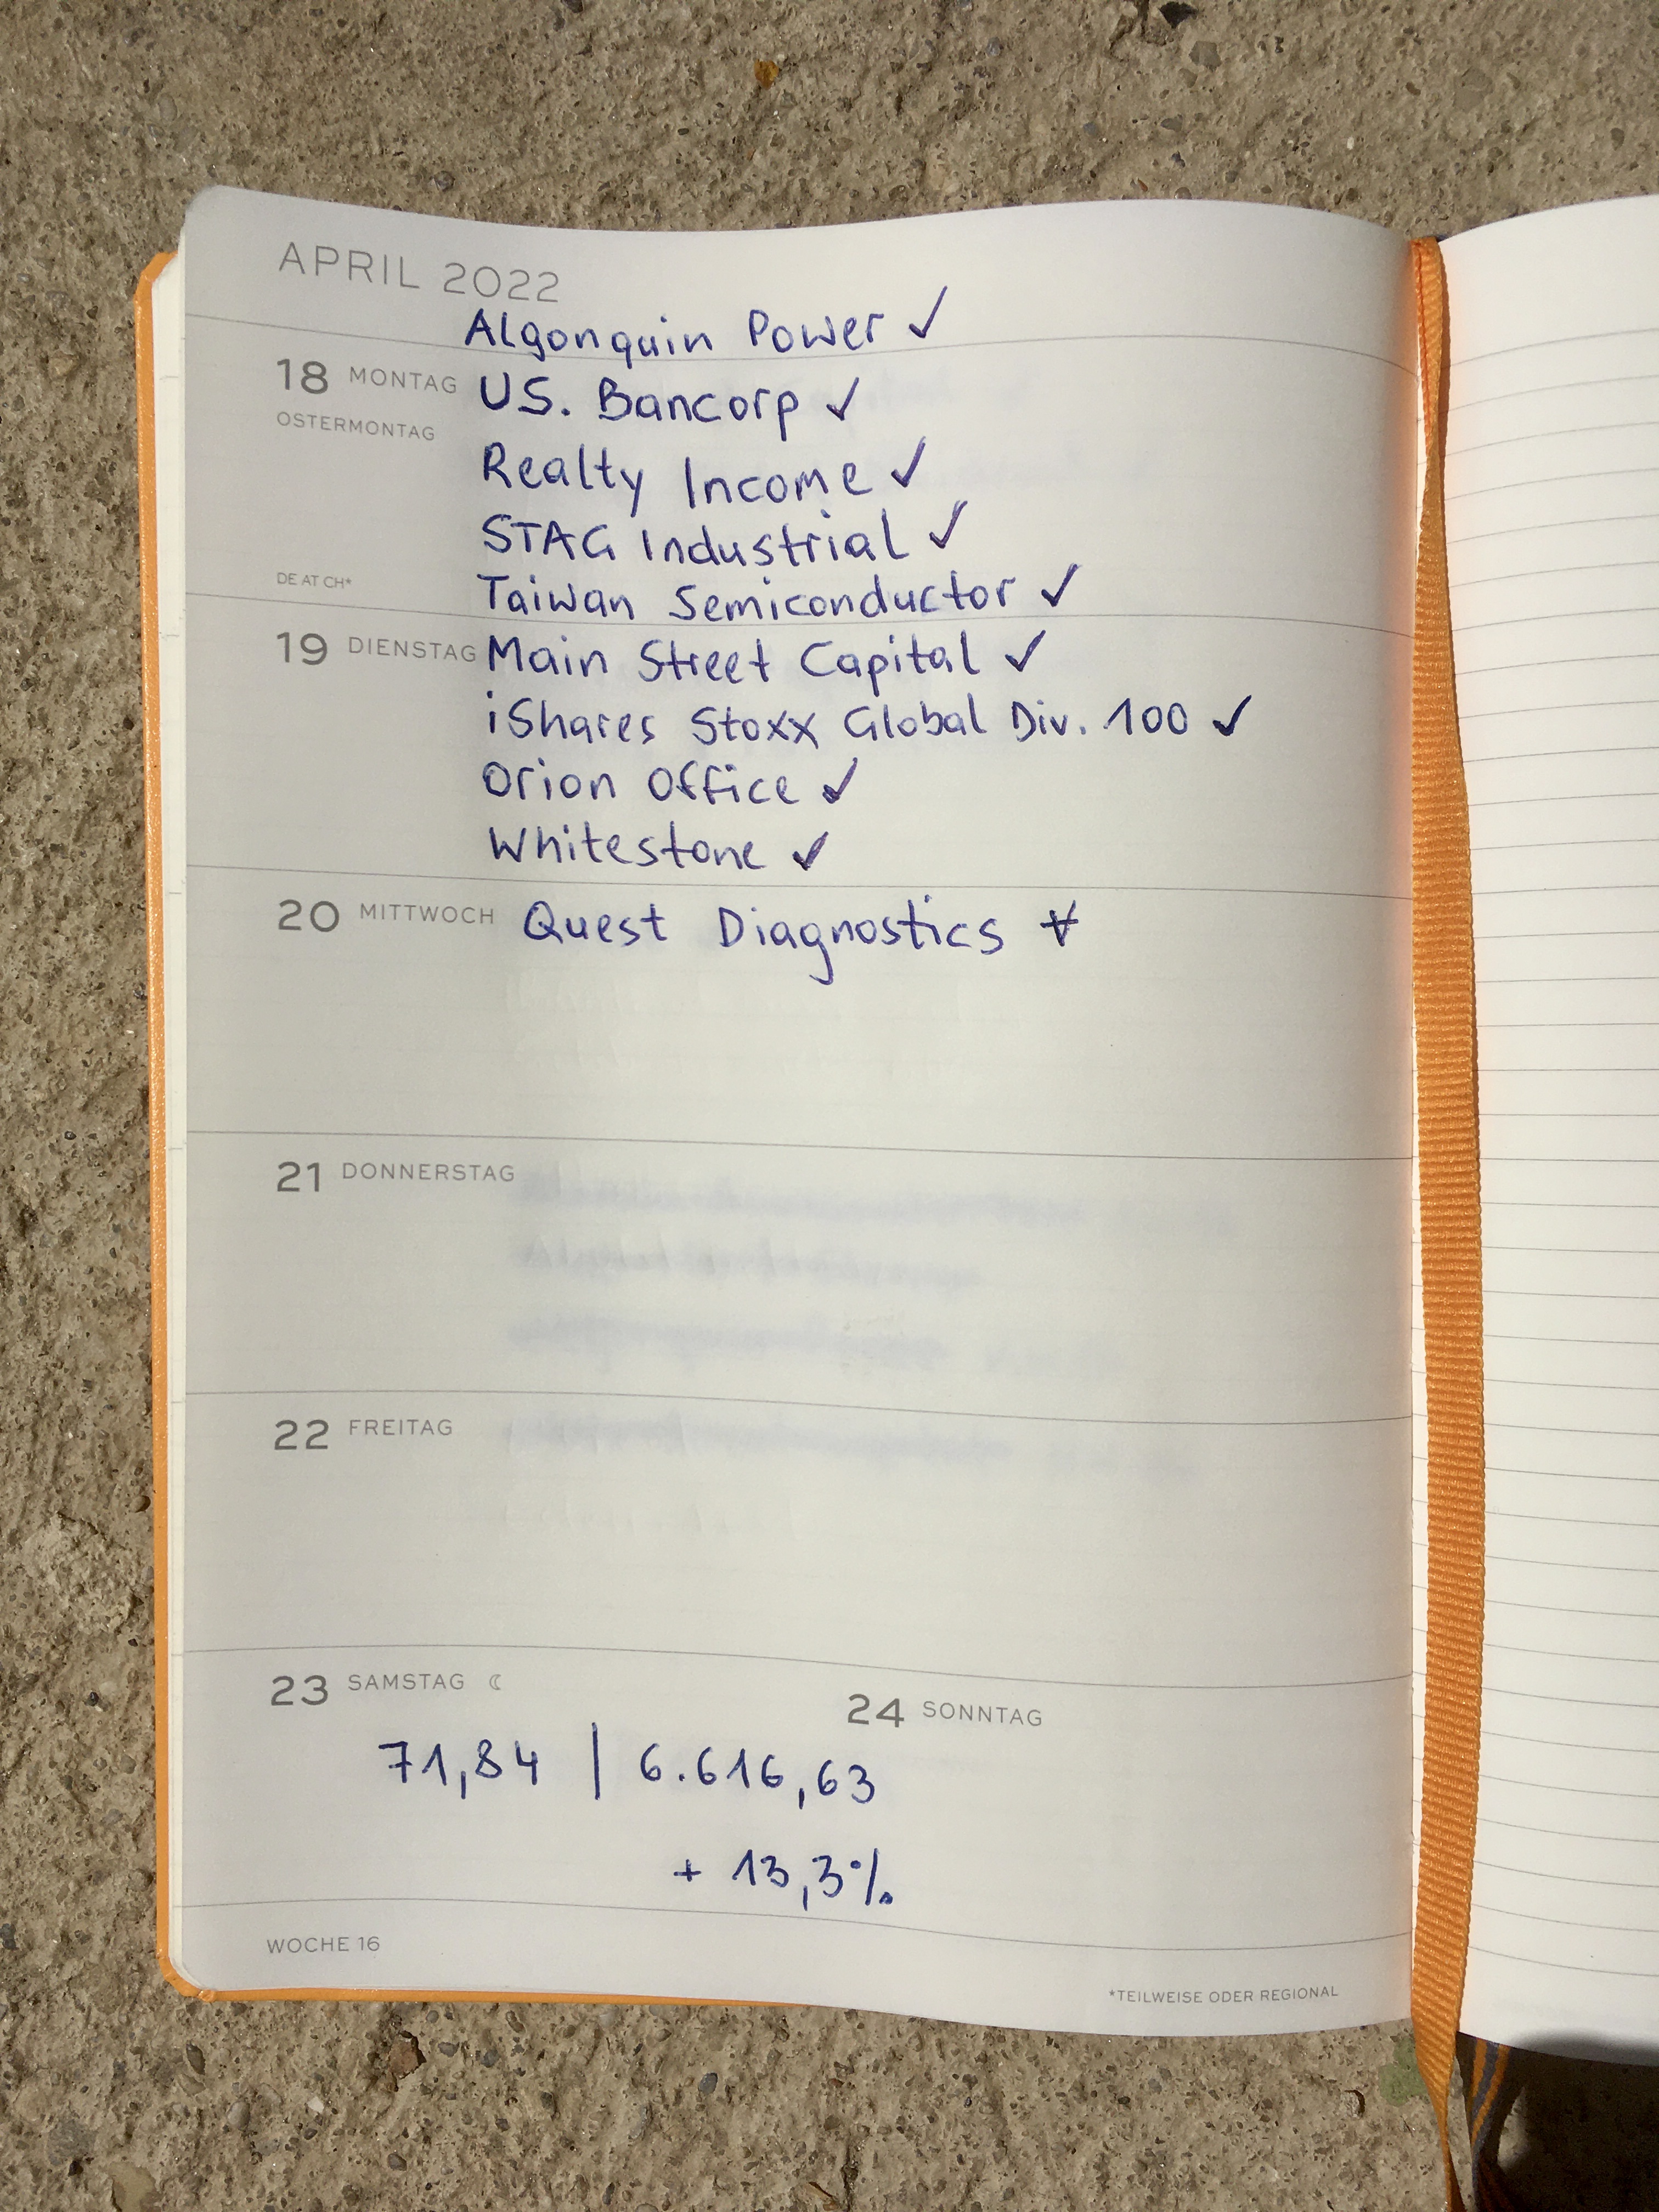 APRIL 2022
Algonquin Power ✓
18 MONTAG US. Bancorp ✓
OSTERMONTAG
Realty Income ✓
STAG Industrial ✓
DE AT CH* Taiwan Semiconductor ✓
19 DIENSTAG Main Street Capital ✓
iShares Stoxx Global Div. 100 ✓
Orion Office ✓
Whitestone ✓
20 MITTWOCH Quest Diagnostics
21 DONNERSTAG
22 FREITAG
23 SAMSTAG ☾ 24 SONNTAG
71,84 | 6.616,63
+ 13,3%
WOCHE 16
*TEILWEISE ODER REGIONAL